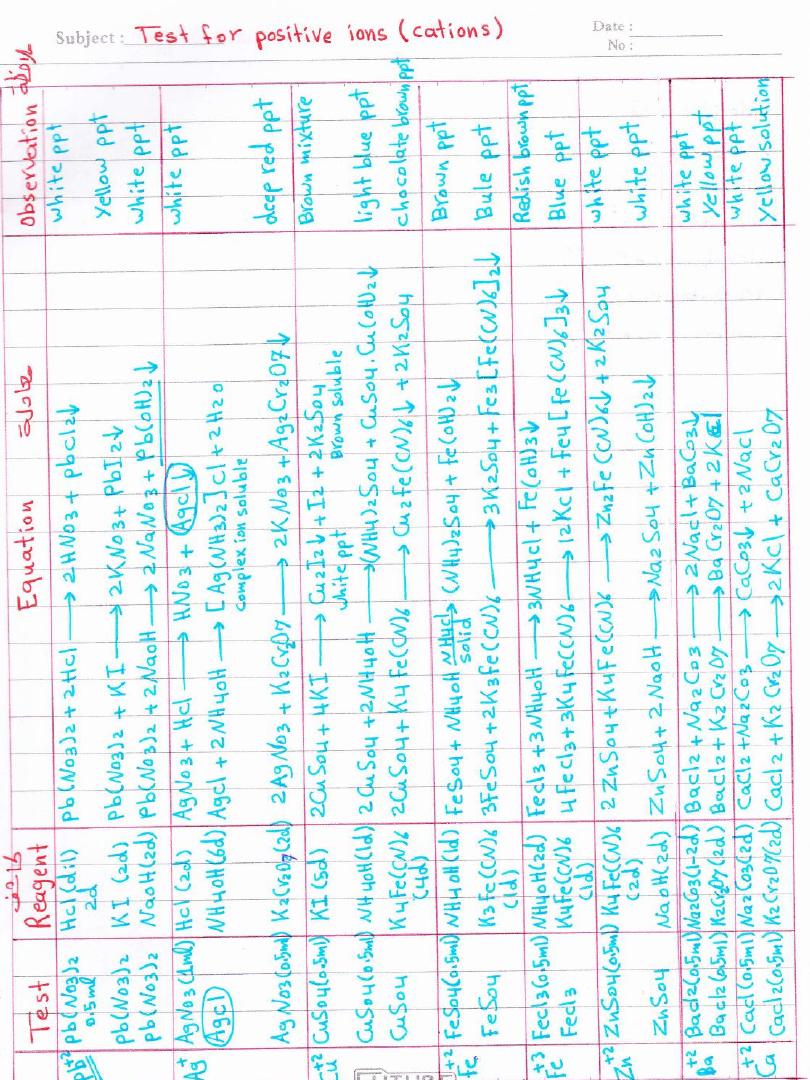 Subject : Test for positive ions (cations)
Date :
No :
Test Reagent Equation معادلة Observation
Pb+2 Pb(NO3)2 0.5ml HCl(dil) 2d Pb(NO3)2 + 2HCl → 2HNO3 + pbcl2↓ white ppt
Pb(NO3)2 KI (2d) Pb(NO3)2 + KI → 2KNO3 + PbI2↓ Yellow ppt
Pb(NO3)2 NaOH(2d) Pb(NO3)2 + 2NaOH → 2NaNO3 + Pb(OH)2↓ white ppt
Ag+ AgNO3(1ml) HCl (2d) AgNO3 + HCl → HNO3 + Agcl↓ white ppt
Agcl NH4OH(6d) Agcl + 2NH4OH → [Ag(NH3)2]Cl + 2H2O
complex ion soluble
AgNO3(0.5ml) K2Cr2O7(2d) 2AgNO3 + K2Cr2O7 → 2KNO3 + Ag2Cr2O7↓ deep red ppt
Cu+2 CuSO4(0.5ml) KI(5d) 2CuSO4 + 4KI → Cu2I2↓ + I2 + 2K2SO4 Brown mixture
white ppt Brown soluble
CuSO4(0.5ml) NH4OH(1d) 2CuSO4 + 2NH4OH → (NH4)2SO4 + CuSO4.Cu(OH)2↓ light blue ppt
CuSO4 K4Fe(CN)6 (14d) 2CuSO4 + K4Fe(CN)6 → Cu2Fe(CN)6↓ + 2K2SO4 chocolate brown ppt
Fe+2 FeSO4(0.5ml) NH4OH(1d) FeSO4 + NH4OH NH4cl solid → (NH4)2SO4 + Fe(OH)2↓ Brown ppt
FeSO4 K3Fe(CN)6 (1d) 3FeSO4 + 2K3Fe(CN)6 → 3K2SO4 + Fe3[Fe(CN)6]2↓ Bule ppt
Fe+3 Fecl3(0.5ml) NH4OH(2d) Fecl3 + 3NH4OH → 3NH4cl + Fe(OH)3↓ Redish brown ppt
Fecl3 K4Fe(CN)6 (1d) 4Fecl3 + 3K4Fe(CN)6 → 12Kcl + Fe4[Fe(CN)6]3↓ Blue ppt
Zn+2 ZnSO4(0.5ml) K4Fe(CN)6 (2d) 2ZnSO4 + K4Fe(CN)6 → Zn2Fe(CN)6↓ + 2K2SO4 white ppt
ZnSO4 NaOH(2d) ZnSO4 + 2NaOH → Na2SO4 + Zn(OH)2↓ white ppt
Ba+2 Bacl2(0.5ml) Na2CO3(1-2d) Bacl2 + Na2CO3 → 2Nacl + BaCO3↓ white ppt
Bacl2(0.5ml) K2Cr2O7(2d) Bacl2 + K2Cr2O7 → BaCr2O7 + 2Kcl Yellow ppt
Ca+2 Cacl(0.5ml) Na2CO3(2d) CaCl2 + Na2CO3 → CaCO3↓ + 2Nacl white ppt
Cacl2(0.5ml) K2Cr2O7(2d) Cacl2 + K2Cr2O7 → 2KCl + CaCr2O7 Yellow solution
FUTURE